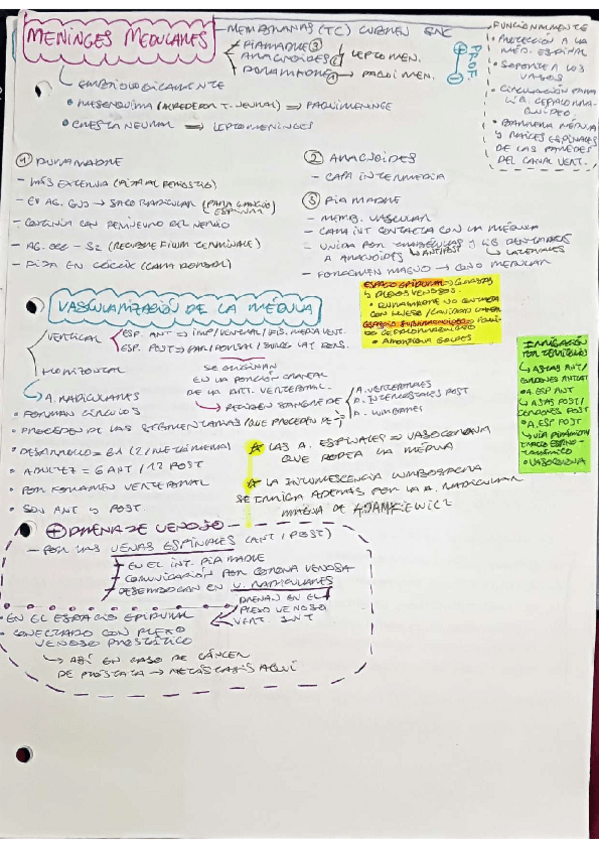 MENINGES MEDULARES
MEMBRANAS (TC) CUBREN SNC
PIAMADRE ③
ARACNOIDES ②
LEPTOMEN.
DURAMADRE ① → PAQUIMEN.
PROF.
FUNCIONALMENTE
• PROTECCIÓN A LA
MÉD. ESPINAL
• SOPORTE A LOS
VASOS
• CIRCULACIÓN PARA
LIQ. CEFALORRA-
QUÍDEO
• BARRERA MÉDULA
Y RAÍCES ESPINALES
DE LAS PAREDES
DEL CANAL VERT.
EMBRIOLÓGICAMENTE
• MESENQUIMA (ALREDEDOR T. NEURAL) ⇒ PAQUIMENINGE
• CRESTA NEURAL ⇒ LEPTOMENINGES
① DURAMADRE
- MÁS EXTERNA (FIJA AL PERIOSTIO)
- EN AG. CONJ → SACO RADICULAR (PARA GANGLIO
ESPINAL)
- CONTINÚA CON PERINEURO DEL NERVIO
- AG. OCC - S2 (RECUBRE FILUM TERMINALE)
- FIJA EN CÓCCIX (CARA DORSAL)
② ARACNOIDES
- CAPA INTERMEDIA
③ PIAMADRE
- MEMB. VASCULAR
- CAPA INT CONTACTA CON LA MÉDULA
- UNIDA POR TRABÉCULAS Y LIG DENTADOS
A ARACNOIDES ↳ ANT/POST ↳ LATERALES
- FORAMEN MAGNO → CONO MEDULAR
ESPACIO EPIDURAL → GRASAS
Y PLEXOS VENOSOS.
• DURAMADRE NO CONTACTA
CON HUESO / CAVIDAD CANAL
ESPACIO SUBARACNOIDEO →
LIQ CEFALORRAQUÍDEO
• AMORTIGUA GOLPES
VASCULARIZACIÓN DE LA MÉDULA
VERTICAL
ESP. ANT → IMP/VENTRAL/FIS. MEDIA VENT.
ESP. POST → PAR/DORSAL/SURCO LAT DORS.
SE ORIGINAN
EN LA PORCIÓN CRANEAL
DE LA ART. VERTEBRAL.
HORIZONTAL
↳ A. RADICULARES
RECIBEN SANGRE DE
A. VERTEBRALES
A. INTERCOSTALES POST
A. LUMBARES
• FORMAN CÍRCULOS
• PROCEDEN DE LAS SEGMENTARIAS (QUE PROCEDEN DE
• DESARROLLO = 61 (2/METÁMERA)
• ADULTEZ = 6 ANT / 12 POST
• POR FORAMEN VERTEBRAL
• SON ANT Y POST.
☆ LAS A. ESPINALES ⇒ VASOCORONA
QUE RODEA LA MÉDULA
☆ LA INTUMESCENCIA LUMBOSACRA
SE IRRIGA ADEMÁS POR LA A. RADICULAR
MAGNA DE ADAMKIEWICZ
IRRIGACIÓN
POR TERRITORIOS
↳ ASTAS ANT/
CORDONES ANTLAT
• A. ESP ANT
↳ ASTAS POST/
CORDONES POST
• A. ESP POST
↳ VÍA PIRAMIDAL/
TRACTO ESPINO-
TALÁMICO
• VASOCORONA
⊕ DRENAJE VENOSO
- POR LAS VENAS ESPINALES (ANT / POST)
EN EL INT. PIAMADRE
COMUNICACIÓN POR CORONA VENOSA
DESEMBOCAN EN V. RADICULARES
DRENAN EN EL
PLEXO VENOSO
VERT. INT
• EN EL ESPACIO EPIDURAL
• CONECTADO CON PLEXO
VENOSO PROSTÁTICO
↳ ASÍ EN CASO DE CÁNCER
DE PRÓSTATA → METÁSTASIS AQUÍ